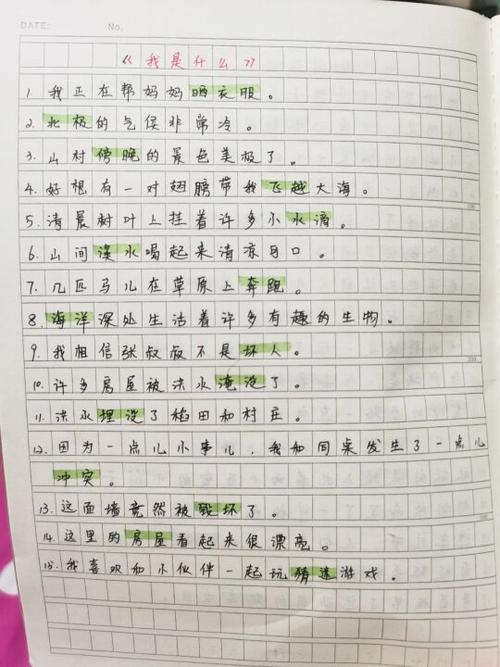 DATE: No.
《我是什么》
1. 我正在帮妈妈晒衣服。
2. 北极的气侯非常冷。
3. 山村傍晚的景色美极了。
4. 好想有一对翅膀带我飞越大海。
5. 清晨树叶上挂着许多小水滴。
6. 山间溪水喝起来清凉可口。
7. 几匹马儿在草原上奔跑。
8. 海洋深处生活着许多有趣的生物。
9. 我相信张叔叔不是坏人。
10. 许多房屋被洪水淹没了。
11. 洪水埋没了稻田和村庄。
12. 因为一点儿小事儿，我和同桌发生了一点儿
冲突。
13. 这面墙竟然被毁坏了。
14. 这里的房屋看起来很漂亮。
15. 我喜欢和小伙伴一起玩猜迷游戏。